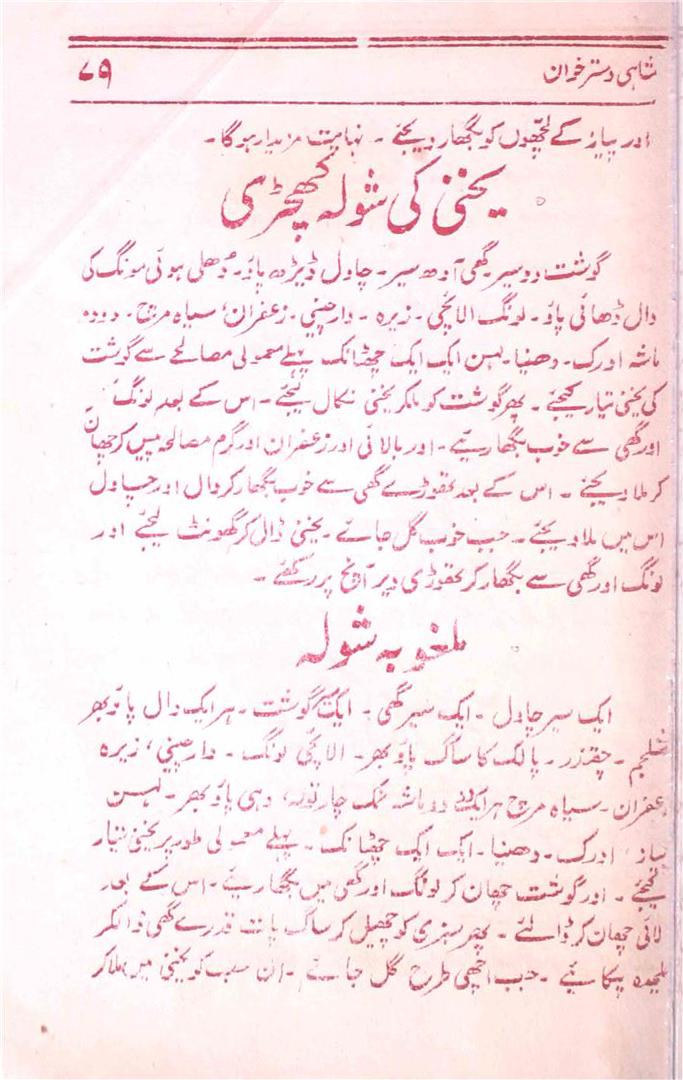 شاہی دسترخوان ۷۹
اور پیاز کے لچھوں کو بگھار دیجئے ۔ نہایت مزیدار ہوگا ۔
یخنی کی شولہ کھچڑی
گوشت دو سیر گھی آدھ سیر ۔ چاول ڈیڑھ پاؤ ۔ دُھلی ہوئی مونگ کی
دال ڈھائی پاؤ ۔ لونگ الائچی ۔ زیرہ ۔ دارچینی ۔ زعفران، سیاہ مرچ ۔ دو دو
ماشہ ادرک ۔ دھنیا ۔ لہن ایک ایک چھٹانک پہلے معمولی مصالحے سے گوشت
کی یخنی تیار کیجئے ۔ پھر گوشت کو ملکر یخنی نکال لیجئے ۔ اس کے بعد لونگ
اور گھی سے خوب بگھاریئے ۔ اور بالائی اور زعفران اور گرم مصالحہ میں کر چھان
کر ملا دیجئے ۔ اس کے بعد تھوڑے گھی سے خوب بگھار کر دال اور چاول
اس میں ملا دیجئے ۔ جب خوب گل جائے ۔ یخنی ڈال کر گھونٹ لیجئے اور
لونگ اور گھی سے بگھار کر تھوڑی دیر آنچ پر رکھئے ۔
ملغوبہ شولہ
ایک سیر چاول ۔ ایک سیر گھی ۔ ایک سیر گوشت ۔ ہر ایک دال پاؤ بھر
شلجم ۔ چقندر ۔ پالک کا ساگ پاؤ بھر ۔ الائچی لونگ ۔ دارچینی، زیرہ
زعفران ۔ سیاہ مرچ ہر ایک دو دو ماشہ نمک چار تولہ، دہی پاؤ بھر ۔ لہسن
پیاز، ادرک ۔ دھنیا ۔ ایک ایک چھٹانک ۔ پہلے معمولی طور پر یخنی تیار
کیجئے ۔ اور گوشت چھان کر لونگ اور گھی میں بگھاریئے ۔ اس کے بعد
بالائی چھان کر ڈالئے ۔ پھر سبزی کو چھیل کر ساگ پات قدرے گھی ڈالکر
علیحدہ پکائیے ۔ جب اچھی طرح گل جائے ۔ ان سب کو یخنی میں ملا کر